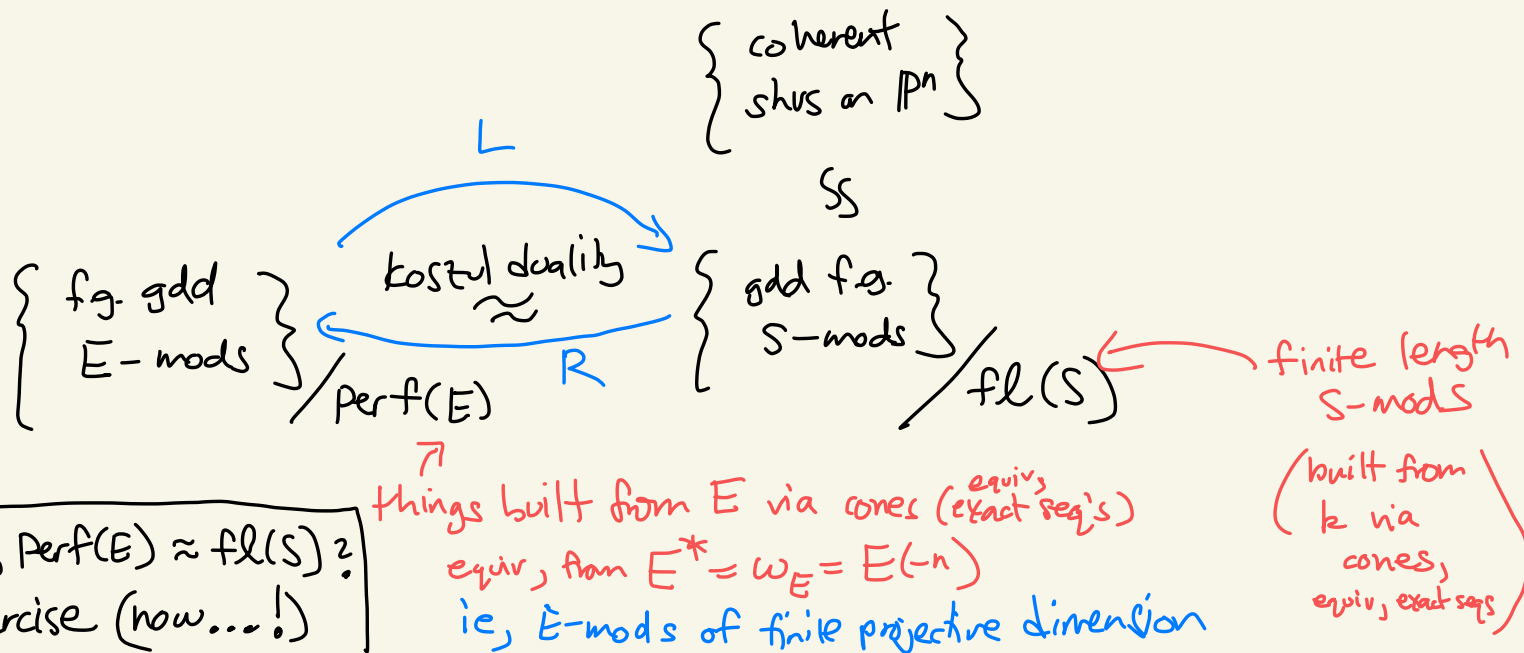 { coherent
shvs on ℙⁿ }
L
SS
{ f.g. gdd
E-mods } / perf(E)
koszul duality
≈
R
{ gdd f.g.
S-mods } / fl(S)
finite length
S-mods
(built from
k via
cones,
equiv, exact seqs)
things built from E via cones (equiv, exact seq's)
equiv, from E* = ω_E = E(-n)
ie, E-mods of finite projective dimension
Perf(E) ≈ fl(S)?
(now...!)